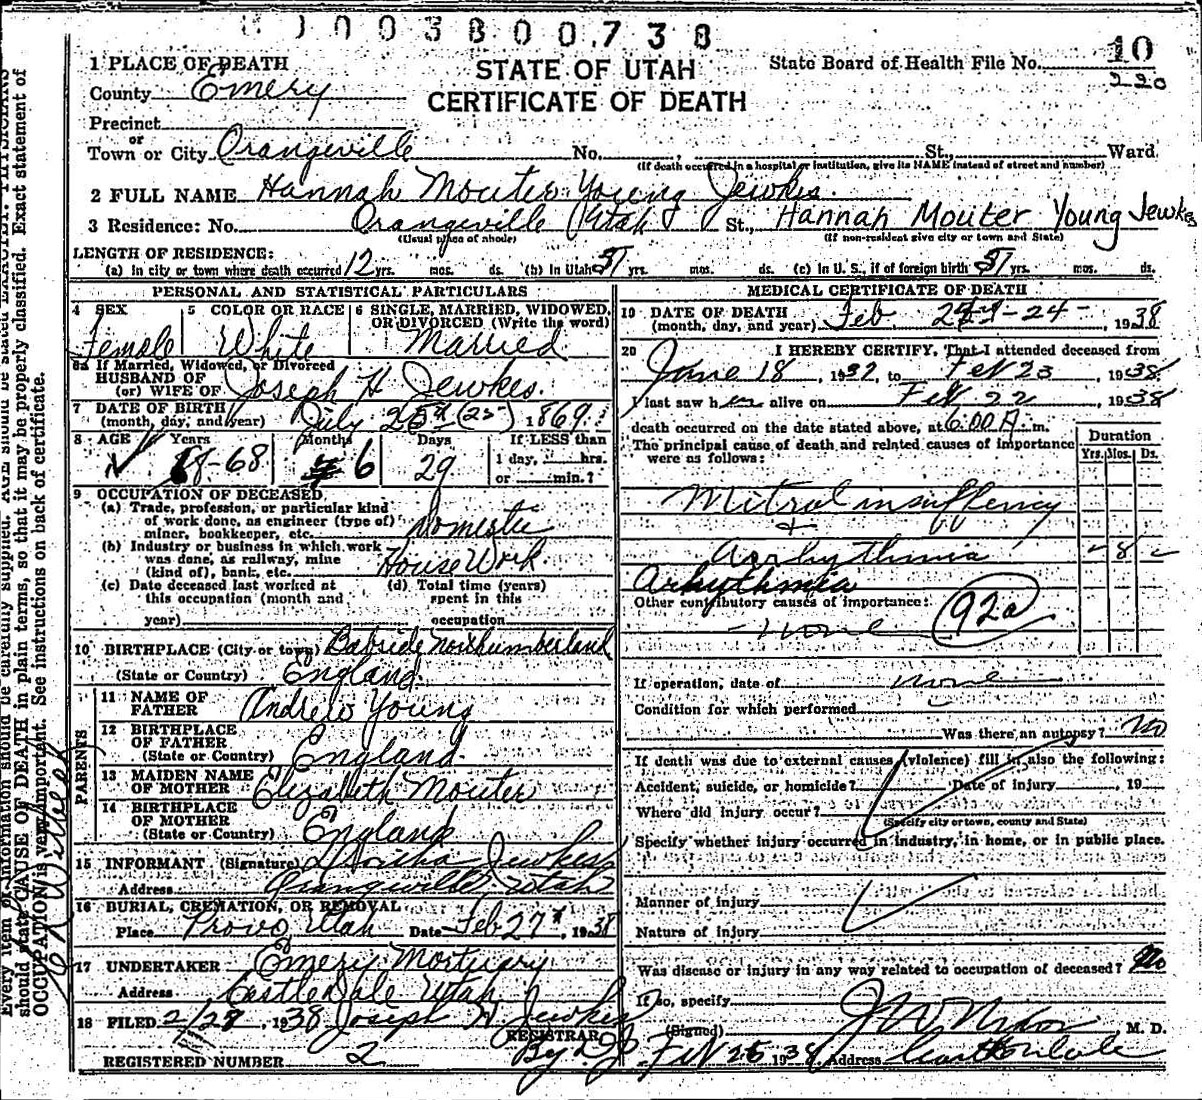 003800738
10
220
1 PLACE OF DEATH
STATE OF UTAH
State Board of Health File No.
County Emery
CERTIFICATE OF DEATH
Precinct
or
Town or City Orangeville No. , St., Ward
(If death occurred in a hospital or institution, give its NAME instead of street and number)
2 FULL NAME Hannah Mouter Young Jewkes.
3 Residence: No. Orangeville Utah St., Hannah Mouter Young Jewkes
(Usual place of abode) (If non-resident give city or town and State)
LENGTH OF RESIDENCE:
(a) In city or town where death occurred 12 yrs. mos. ds. (b) In Utah 51 yrs. mos. ds. (c) In U. S., if of foreign birth 51 yrs. mos. ds.
PERSONAL AND STATISTICAL PARTICULARS
4 SEX 5 COLOR OR RACE 6 SINGLE, MARRIED, WIDOWED, OR DIVORCED (Write the word)
Female White Married
6a If Married, Widowed, or Divorced
HUSBAND OF
(or) WIFE OF Joseph H Jewkes.
7 DATE OF BIRTH
(month, day, and year) July 25th (25) 1869
8 AGE Years Months Days If LESS than
68-68 6 29 1 day, hrs.
or min.?
9 OCCUPATION OF DECEASED
(a) Trade, profession, or particular kind
of work done, as engineer (type of)
miner, bookkeeper, etc. Domestic
(b) Industry or business in which work
was done, as railway, mine
(kind of), bank, etc. House Work
(c) Date deceased last worked at (d) Total time (years)
this occupation (month and spent in this
year) occupation
10 BIRTHPLACE (City or town) Bebside Northumberland
(State or Country) England
PARENTS
11 NAME OF
FATHER Andrew Young
12 BIRTHPLACE
OF FATHER
(State or Country) England
13 MAIDEN NAME
OF MOTHER Elizabeth Mouter
14 BIRTHPLACE
OF MOTHER
(State or Country) England
15 INFORMANT (Signature) Jewkes
Address Orangeville, Utah
16 BURIAL, CREMATION, OR REMOVAL
Place Provo Utah Date Feb 27, 1938
17 UNDERTAKER Emery Mortuary
Address Castle Dale Utah
18 FILED 2/28, 1938 Joseph H Jewkes
REGISTRAR
By
REGISTERED NUMBER 2
MEDICAL CERTIFICATE OF DEATH
19 DATE OF DEATH
(month, day, and year) Feb -24- , 1938
20 I HEREBY CERTIFY, That I attended deceased from
June 18, 1937, to Feb 23 1938
I last saw her alive on Feb 22 1938
death occurred on the date stated above, at 6:00 A. m.
The principal cause of death and related causes of importance
were as follows:
Duration
Yrs. Mos. Ds.
Mitral insuffiency
+
Aorhythmia - 8 -
Arhythmia
Other contributory causes of importance:
- none 92a
If operation, date of none
Condition for which performed
Was there an autopsy? No
If death was due to external causes (violence) fill in also the following:
Accident, suicide, or homicide? Date of injury , 19
Where did injury occur?
(Specify city or town, county and State)
Specify whether injury occurred in industry, in home, or in public place.
Manner of injury
Nature of injury
Was disease or injury in any way related to occupation of deceased? No
If so, specify
(Signed) J W Nixon M. D.
Feb 25 1938 Address Castle Dale
Every item of information should be carefully supplied. AGE should be stated EXACTLY. PHYSICIANS
should state CAUSE OF DEATH in plain terms, so that it may be properly classified. Exact statement of
OCCUPATION is very important. See instructions on back of certificate.